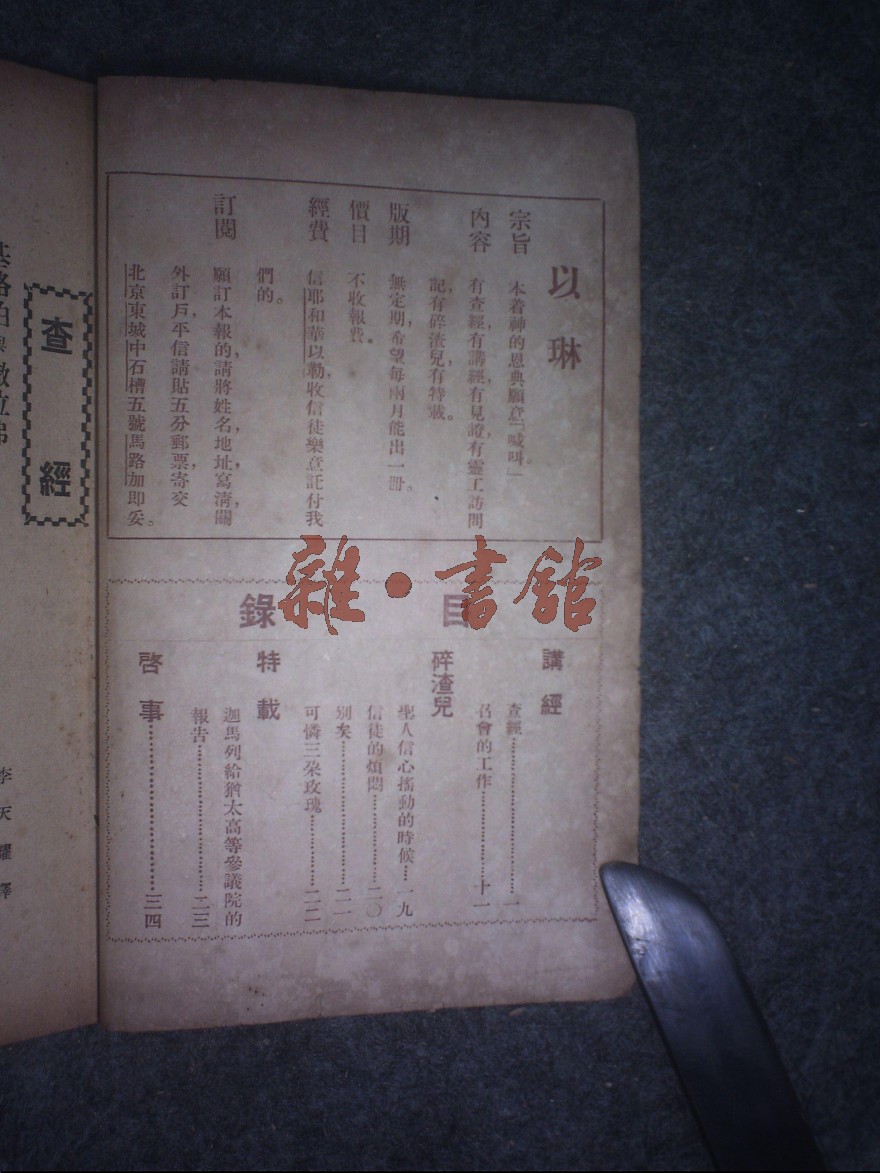 以琳
宗旨 本着神的恩典願意「喊叫」。
內容 有查經,有講經,有見證,有靈工訪問
記,有碎渣兒,有特載。
版期 無定期,希望每兩月能出一冊。
價目 不收報費。
經費 信耶和華以勒,收信徒樂意託付我
們的。
訂閱 願訂本報的,請將姓名,地址,寫淸關
外訂戶,平信請貼五分郵票,寄交
北京東城中石槽五號馬路加即妥。
雜·書館
目錄
講經
查經……一
召會的工作……十一
碎渣兒
聖人信心搖動的時候……一九
信徒的煩悶……二〇
別矣……二一
可憐三朶玫瑰……二二
特載
迦馬列給猶太高等參議院的
報告……二三
啓事……三四
查經
李天耀譯